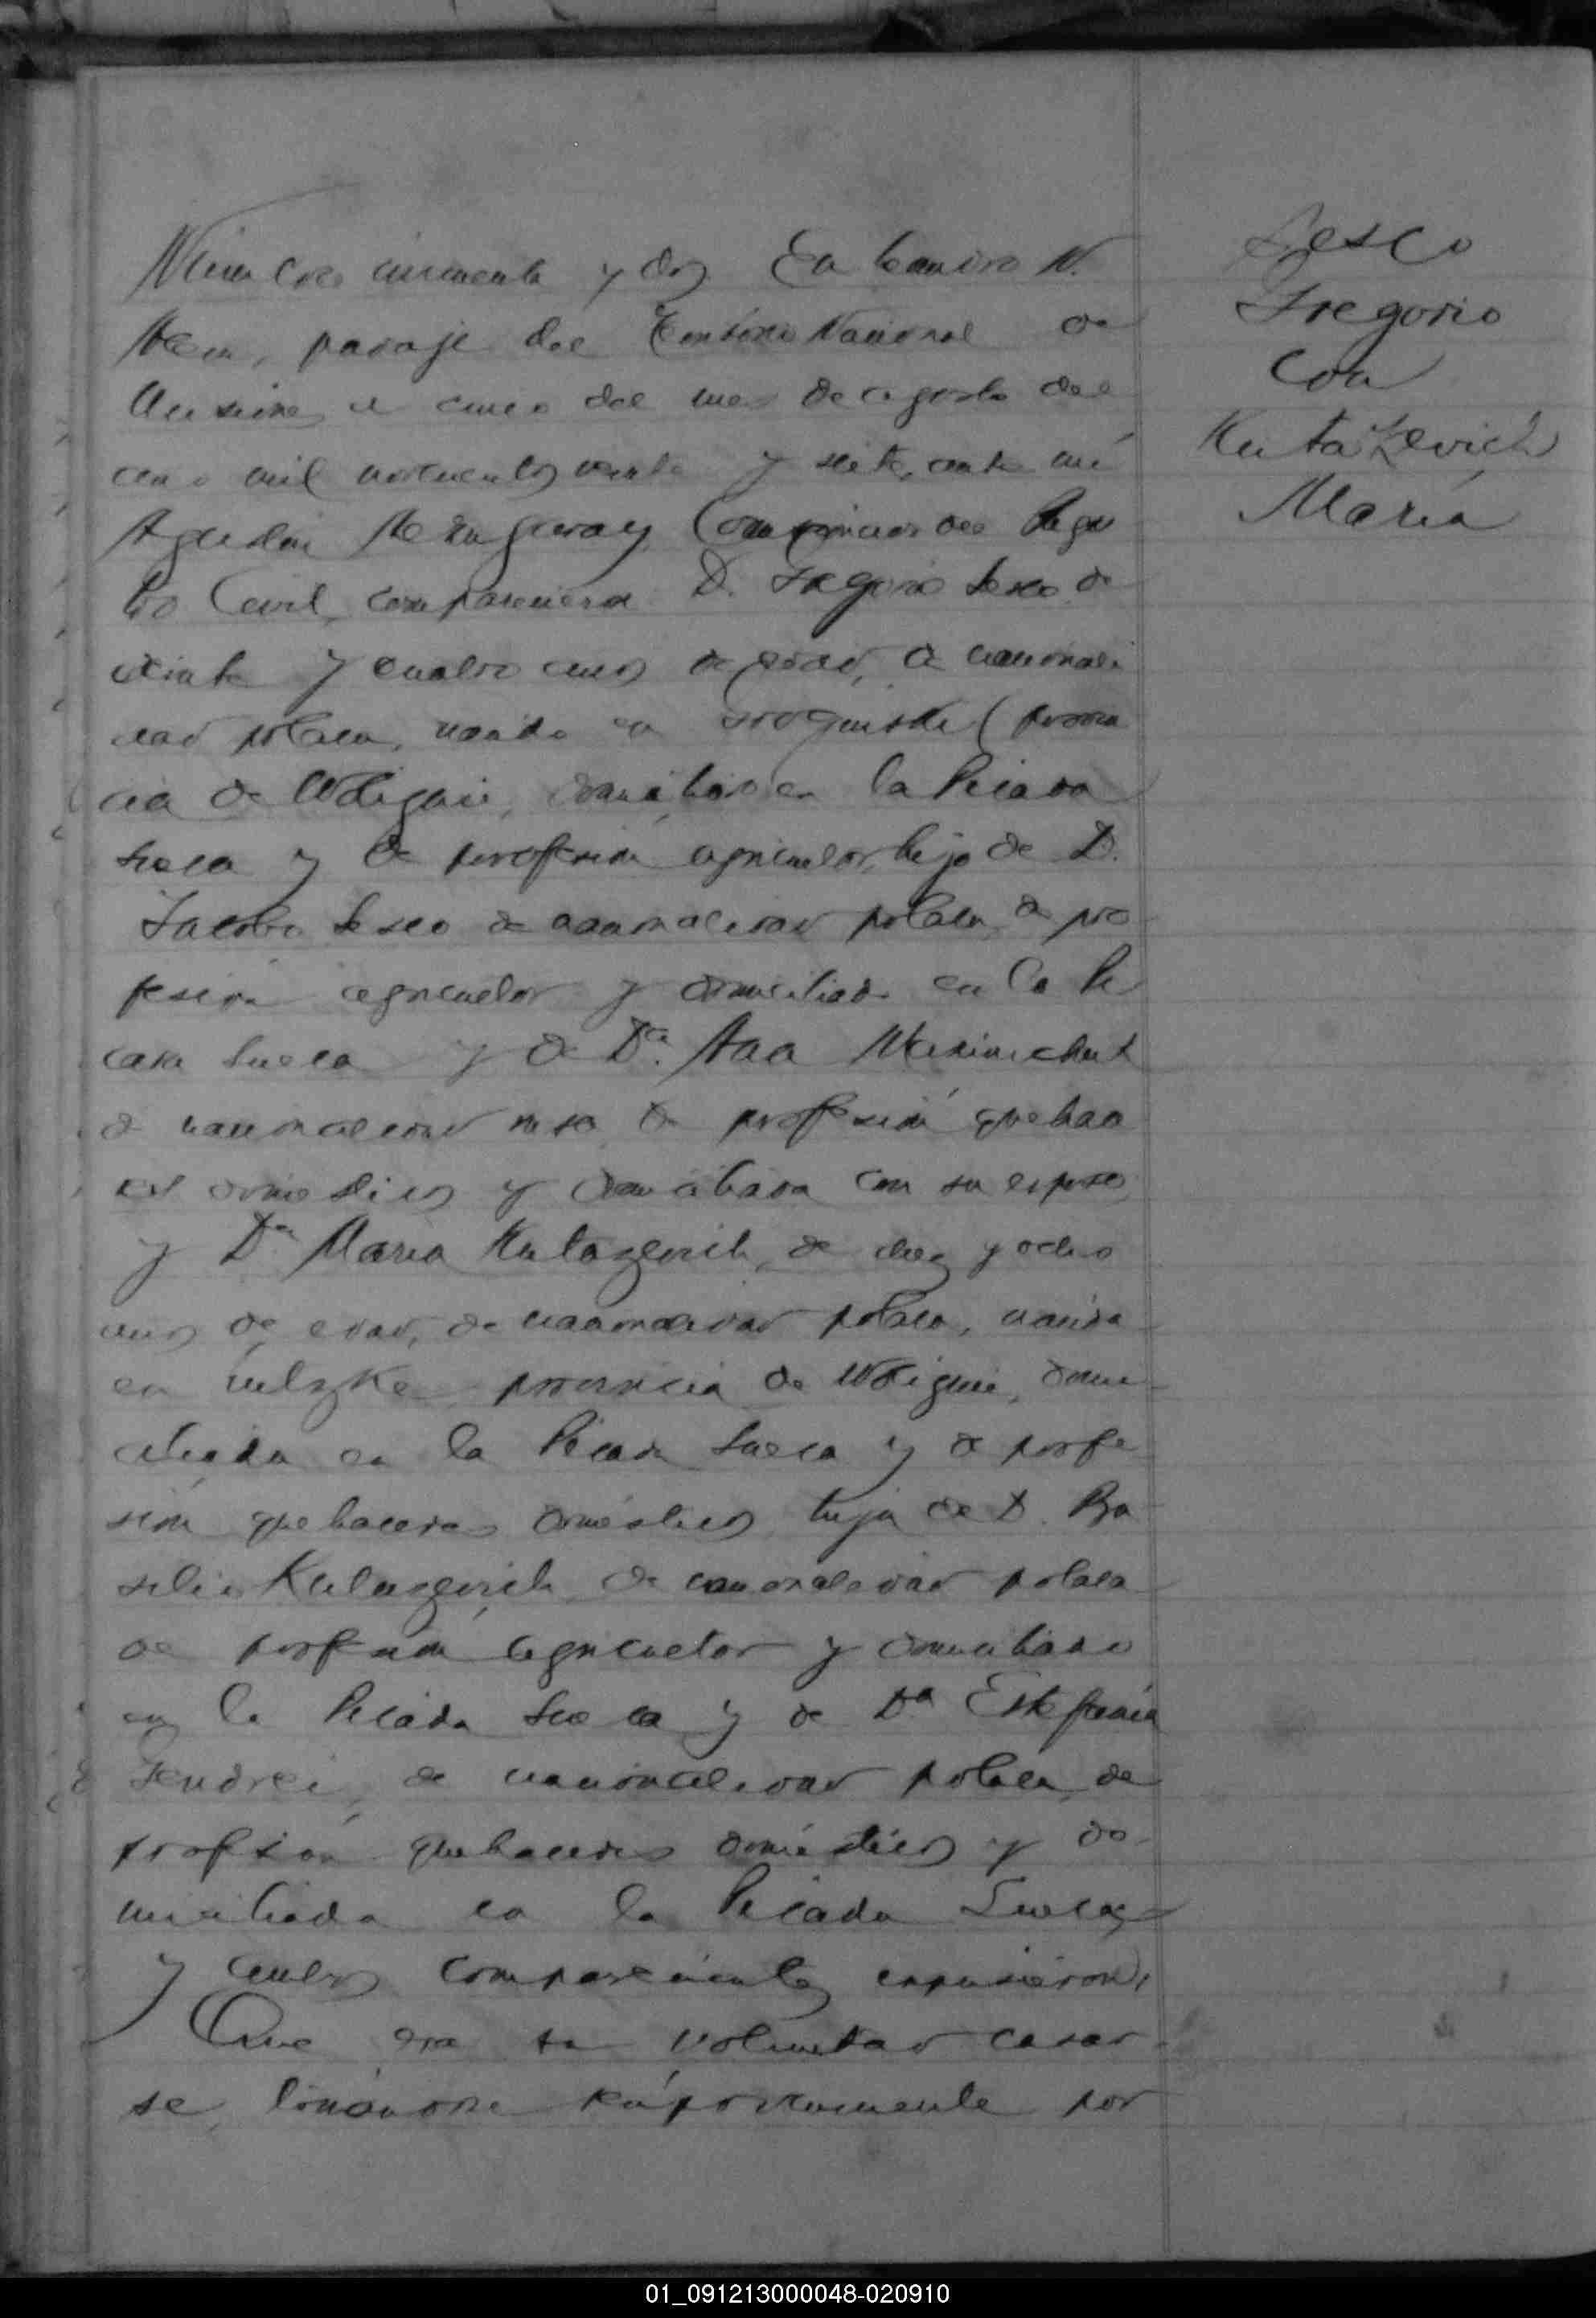 Número cincuenta y dos En Leandro N.
Alem, paraje del Territorio Nacional de
Misiones a cinco del mes de agosto del
año mil novecientos veinte y siete, ante mí
Agustín Encargado del Regis
tro Civil, comparecieron D. Gregorio Sesco de
veinte y cuatro años de edad, de nacionali
dad polaca, nacido en (provin
cia de Woligni, domiciliado en la Picada
Sueca y de profesión agricultor, hijo de D.
Jacobo Sesco de nacionalidad polaca, de pro
fesión agricultor y domiciliado en la Pi
cada Sueca y de Da. Ana
de nacionalidad rusa de profesión quehace
res domésticos y domiciliada con su esposo
y Da. María Kutazevich, de diez y ocho
años de edad, de nacionalidad polaca, nacida
en provincia de Woligni, domi
ciliada en la Picada Sueca y de profe
sión quehaceres domésticos hija de D. Ba
silio Kutazevich de nacionalidad polaca
de profesión agricultor y domiciliado
en la Picada Sueca y de Da Estefanía
de nacionalidad polaca, de
profesión quehaceres domésticos y do
miciliada en la Picada Sueca
y ambos comparecientes expusieron,
Que era su voluntad casar
se, tomándose recíprocamente por
Sesco
Gregorio
Con
Kutazevich
María
01_091213000048-020910